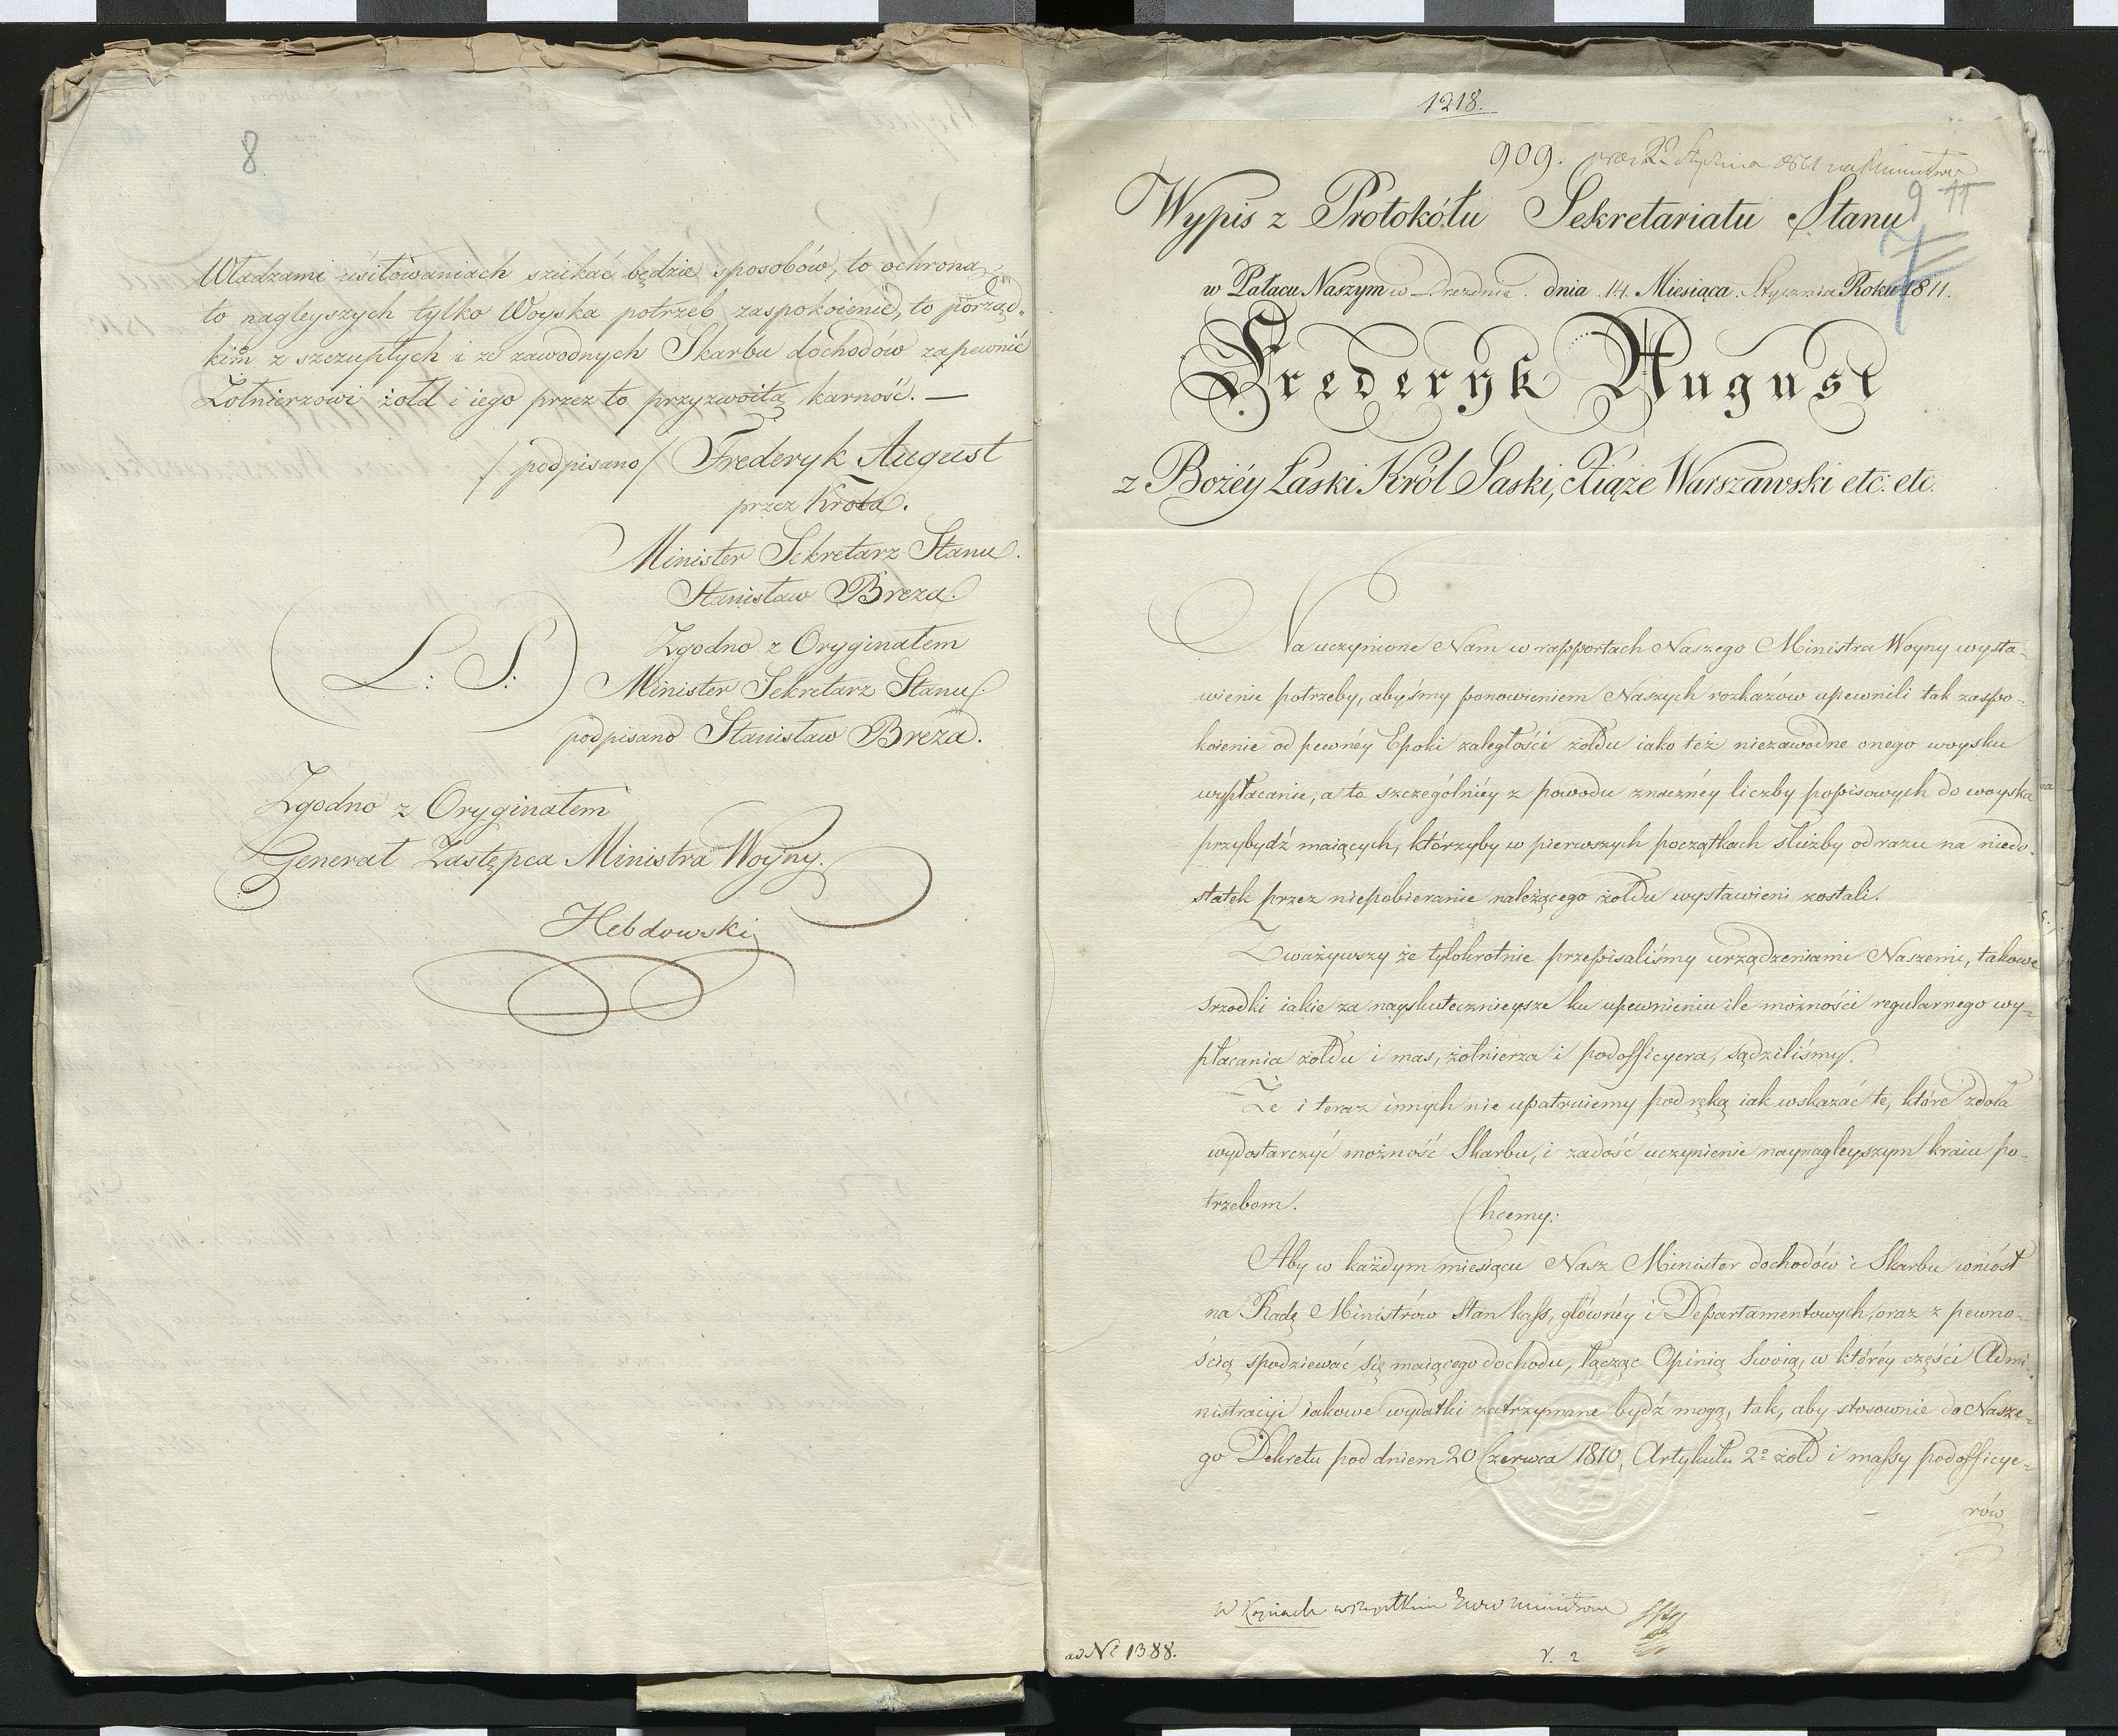 8
Władzami usiłowaniach szukać będzie sposobów, to ochroną,
to nagleyszych tylko Woyska potrzeb zaspokoienié, to porząd„
kim z szczupłych i ze zawodnych Skarbu dochodów zapewnić
Żołnierzowi żołd i iego przez to przyzwoitą karność. —
/podpisano/ Frederyk August
przez Króla.
Minister Sekretarz Stanu.
Stanisław Breza.
Zgodno z Oryginałem
(L: S:) Minister Sekretarz Stanu.
podpisano Stanisław Breza.
Zgodno z Oryginałem
Generał Zastępca Ministra Woyny.
Hebdowski
1218.
909. 22 Stycznia
9 11
Wypis z Protokółu Sekretariatu Stanu
7
w Pałacu Naszym w Dreznie. dnia 14. Miesiąca Stycznia Roku 1811.
Frederyk August
z Bożéy Łaski Król Saski, Xiąże Warszawski etc: etc.
Na uczynione Nam w rapportach Naszego Ministra Woyny wysta-
wienie potrzeby, abyśmy ponowieniem Naszych rozkazów upewnili tak zaspo-
koienie od pewnéy Epoki zaległości żołdu iako też niezawodne onego woysku
wypłacanie, a to szczególniéy z powodu znacznéy liczby popisowych do woyska
przybydź maiących, którzyby w pierwszych początkach służby od razu na niedo-
statek przez niepobieranie należącego żołdu wystawieni zostali.
Zważywszy że tylokrotnie przepisaliśmy urządzeniami Naszemi, takowe
srzodki iakie za nayskutecznieysze ku upewnieniu ile możności regularnego wy-
płacania żołdu i mas, żołnierza i podofficyera, sądziliśmy.
Że i teraz innych nie upatruiemy pod ręką iak wskazać te, które zdoła
wydostarczyć możność Skarbu, i zadość uczynienie naynagleyszym kraiu po-
trzebom. Chcemy:
Aby w każdym miesiącu Nasz Minister dochodów i Skarbu wniósł
na Radę Ministrów Stan kass, głównéy i Departamentowych, oraz z pewno-
ścią spodziewać się maiącego dochodu, łącząc Opinią Swoią, w któréy części Admi-
nistracyi iakowe wydatki zatrzymane bydź mogą, tak, aby stosownie do Nasze-
go Dekretu pod dniem 20 Czerwca 1810, Artykułu 2º żołd i massy podofficye-
rów
W Kopiach wszystkim
ad Nº 1388.